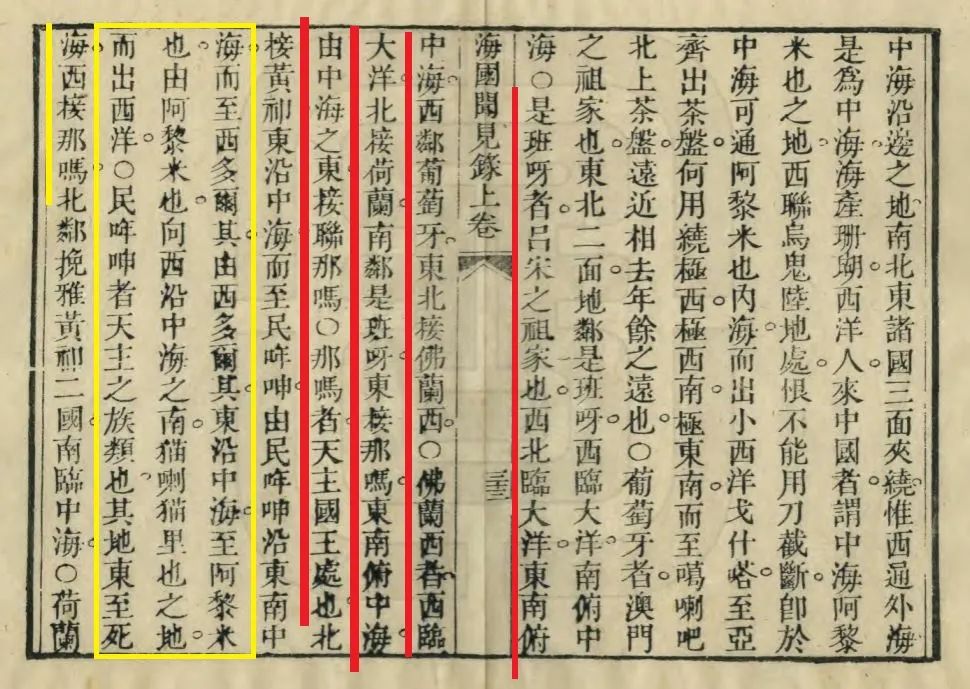 中海沿邊之地南北東諸國三面夾繞惟西通外海
是爲中海海產珊瑚西洋人來中國者謂中海阿黎
米也之地西聯烏鬼陸地處恨不能用刀截斷卽於
中海可通阿黎米也內海而出小西洋戈什嗒至亞
齊出茶盤何用繞極西極西南極東南而至噶喇吧
北上茶盤遠近相去年餘之遠也○葡萄牙者澳門
之祖家也東北二面地鄰是班呀西臨大洋南俯中
海○是班呀者呂宋之祖家也西北臨大洋東南俯
海國聞見錄上卷
三三
中海西鄰葡萄牙東北接佛蘭西○佛蘭西者西臨
大洋北接荷蘭南鄰是班呀東接那嗎東南俯中海
由中海之東接聯那嗎○那嗎者天主國王處也北
接黃祁東沿中海而至民哖呻由民哖呻沿東南中
海而至西多爾其由西多爾其東沿中海至阿黎米
也由阿黎米也向西沿中海之南猫喇猫里也之地
而出西洋○民哖呻者天主之族類也其地東至死
海西接那嗎北鄰挽雅黃祁二國南臨中海○荷蘭